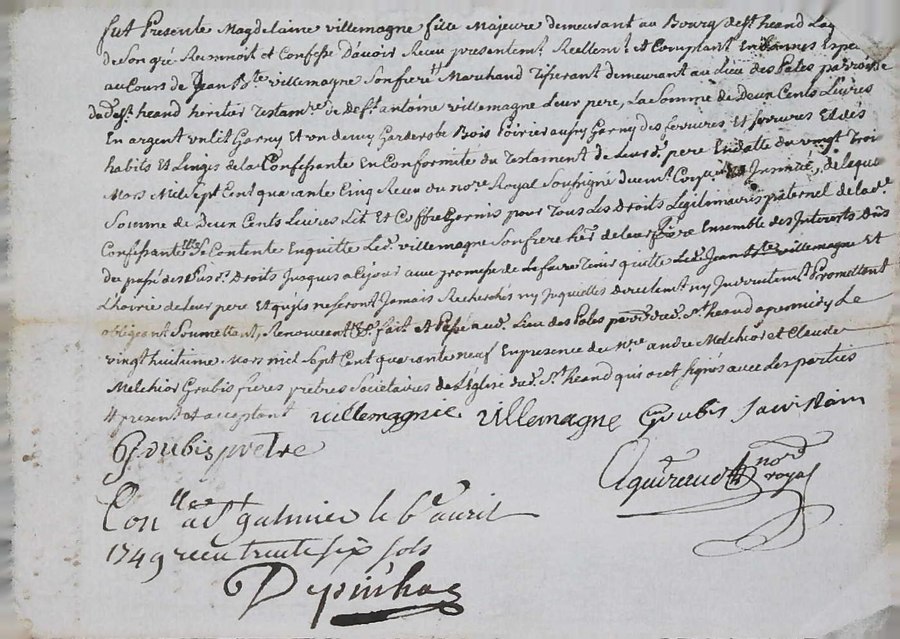 fut Presente Magdelaine villemagne fille Majeure demeurant au Bourg de st heand Laq
de Son gré Reconnoit et Confesse D'avoir Receu presentemt. Reellemt. et Comptant En bonnes Espe
au Cours de Jean Bte villemagne Son frere Marchand Tisserant demeurant au Lieu des Pales parroisse
de St. heand heritier Testamre de deft. antoine villemagne Leur pere, La Somme de Deux Cents Livres
En argent un lit Garny Et un demy Garderobe Bois Poirier aussy Garny des ferrures Et Serrures Et des
habits Et Linges de la Confessante En Conformité du Testament de Leurd. pere En datte du vingt Trois
Mars Mil Sept Cent quarante Cinq Receu du nore Royal Soussigné duemt. Insinué, de laque
Somme de Deux Cents Livres Lit Et Coffre Garnis pour Tous Les Droits Legitimaires paternel de lade.
Confessante Se Contente Enquitte Led. villemagne Son frere her. de leur pere Ensemble des Interests Dûs
du passé desdus. Droits Jusques a Ce jour avec promesse de Le faire Tenir quitte Led. Jean Bte villemagne Et
L'hoirie de Leur pere Et quils ne Seront Jamais Recherchés ny Inquietés Directemt ny Indirectemt. Promettant
obligeant Soumettant, Renonceant &c. fait Et Passé aud. Lieu des Pales parre. dud. St. heand apres midy Le
vingt huitieme Mars mil Sept Cent quarante neuf En presence de Mre andre Melchior et Claude
Melchior Grubis freres pretres Societaires de L'Eglise dud. St heand qui ont Signés avec Les parties
present et acceptant villemagnie villemagne Grubis
Grubis pretre
Aguiraud nore royal
Conlle a St galmier le 6e avril
1749 receu trente six sols
Depinhac